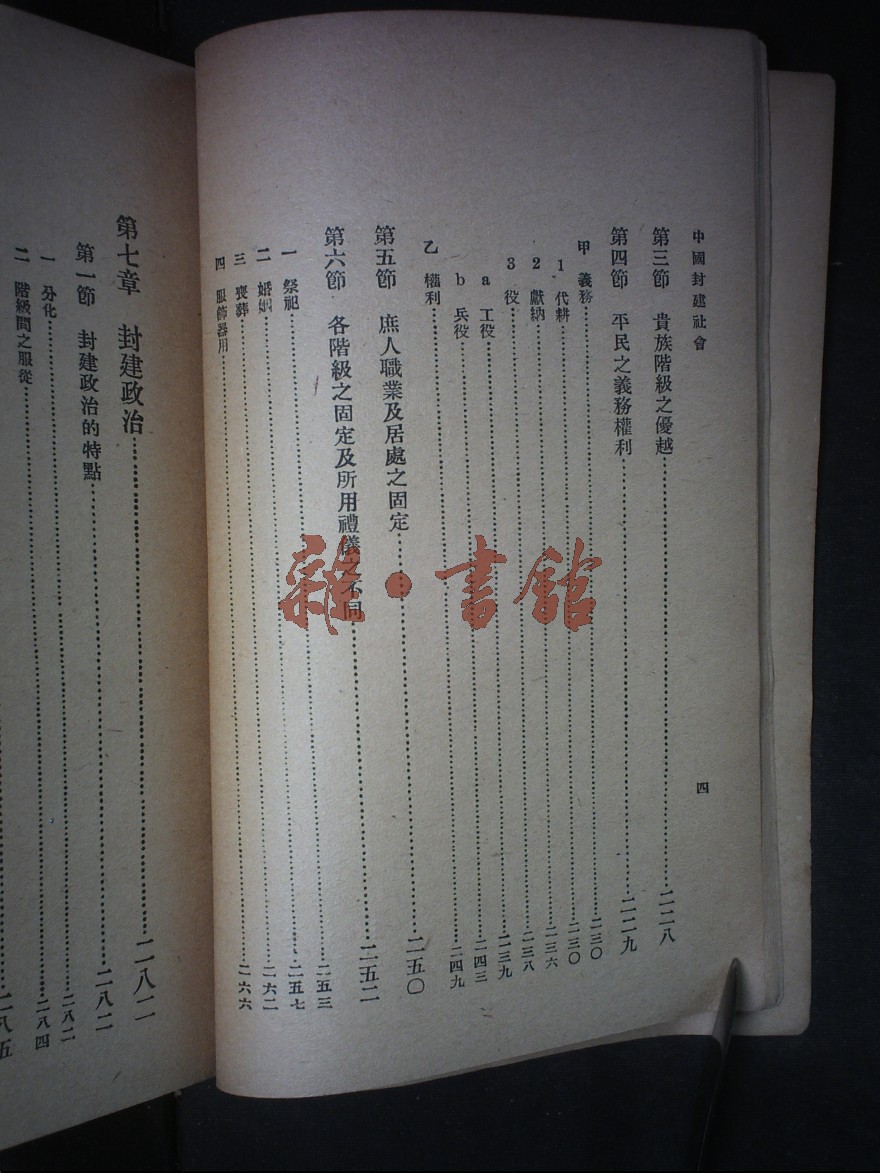 中國封建社會 四
第三節 貴族階級之優越……二二八
第四節 平民之義務權利……二二九
甲 義務……二三〇
1 代耕……二三〇
2 獻納……二三六
3 役……二三八
a 工役……二三九
b 兵役……二四三
乙 權利……二四九
第五節 庶人職業及居處之固定……二五〇
第六節 各階級之固定及所用禮儀之不同……二五二
一 祭祀……二五三
二 婚姻……二五七
三 喪葬……二六二
四 服飾器用……二六六
第七章 封建政治……二八二
第一節 封建政治的特點……二八二
一 分化……二八二
二 階級間之服從……二八四
二八五
雜·書館